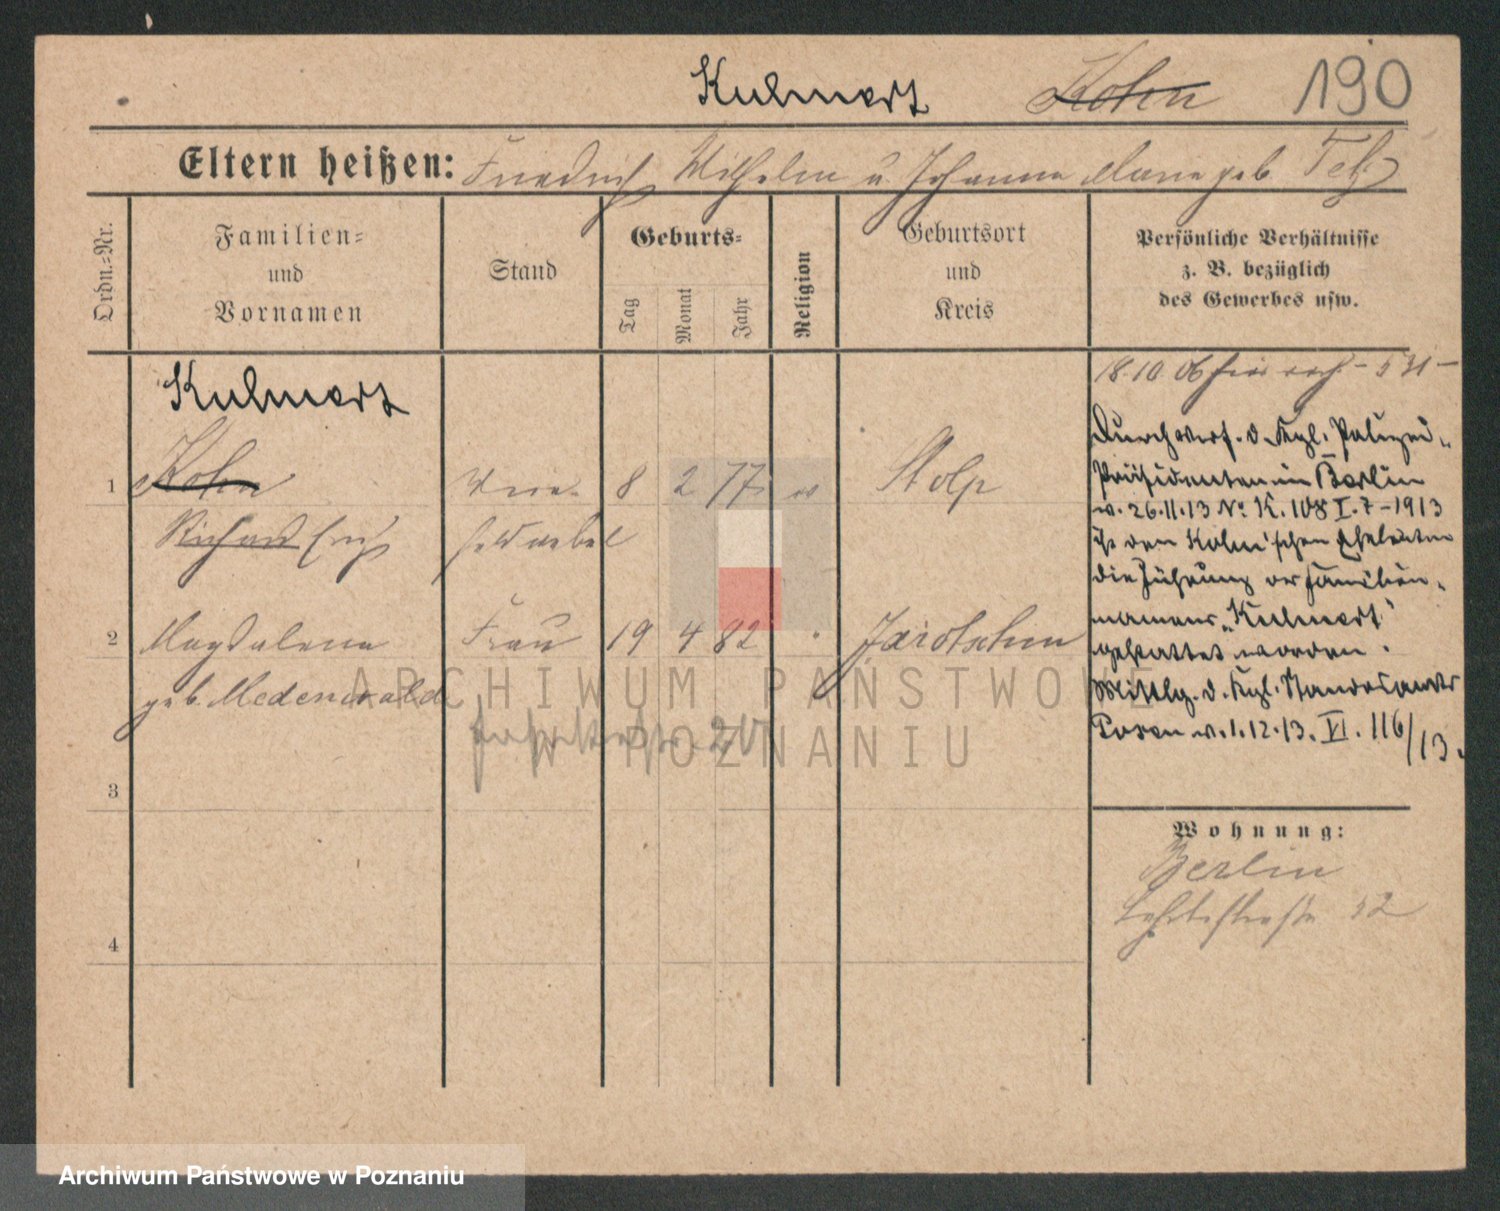 Kulmert Kohn 190
Eltern heißen: Friedrich Wilhelm u. Johanna Marie geb. Tetz
Ordn.-Nr.
Familien-
und
Vornamen
Stand
Geburts-
Tag
Monat
Jahr
Religion
Geburtsort
und
Kreis
Persönliche Verhältnisse
z. B. bezüglich
des Gewerbes usw.
Kulmert
1 Kohn 8 2 77 Stolp
Richard Erich feldwebel
2 Magdalena Frau 19 4 82 " Jarotschin
geb. Medenwald
3
4
18.10.06
Durch Verf. d. Kgl. Polizei-
Präsidenten in Berlin
v. 26.11.13 No K. 108 I. 7-1913
ist den Kohn'schen Eheleuten
die Führung des Familien-
namens "Kulmert"
gestattet worden.
Mittlg. d. Kgl. Standesamts
Posen v. 1.12.13. VI. 116/13.
Wohnung:
Berlin
Lehrterstraße 52
ARCHIWUM PAŃSTWOWE
W POZNANIU
Archiwum Państwowe w Poznaniu